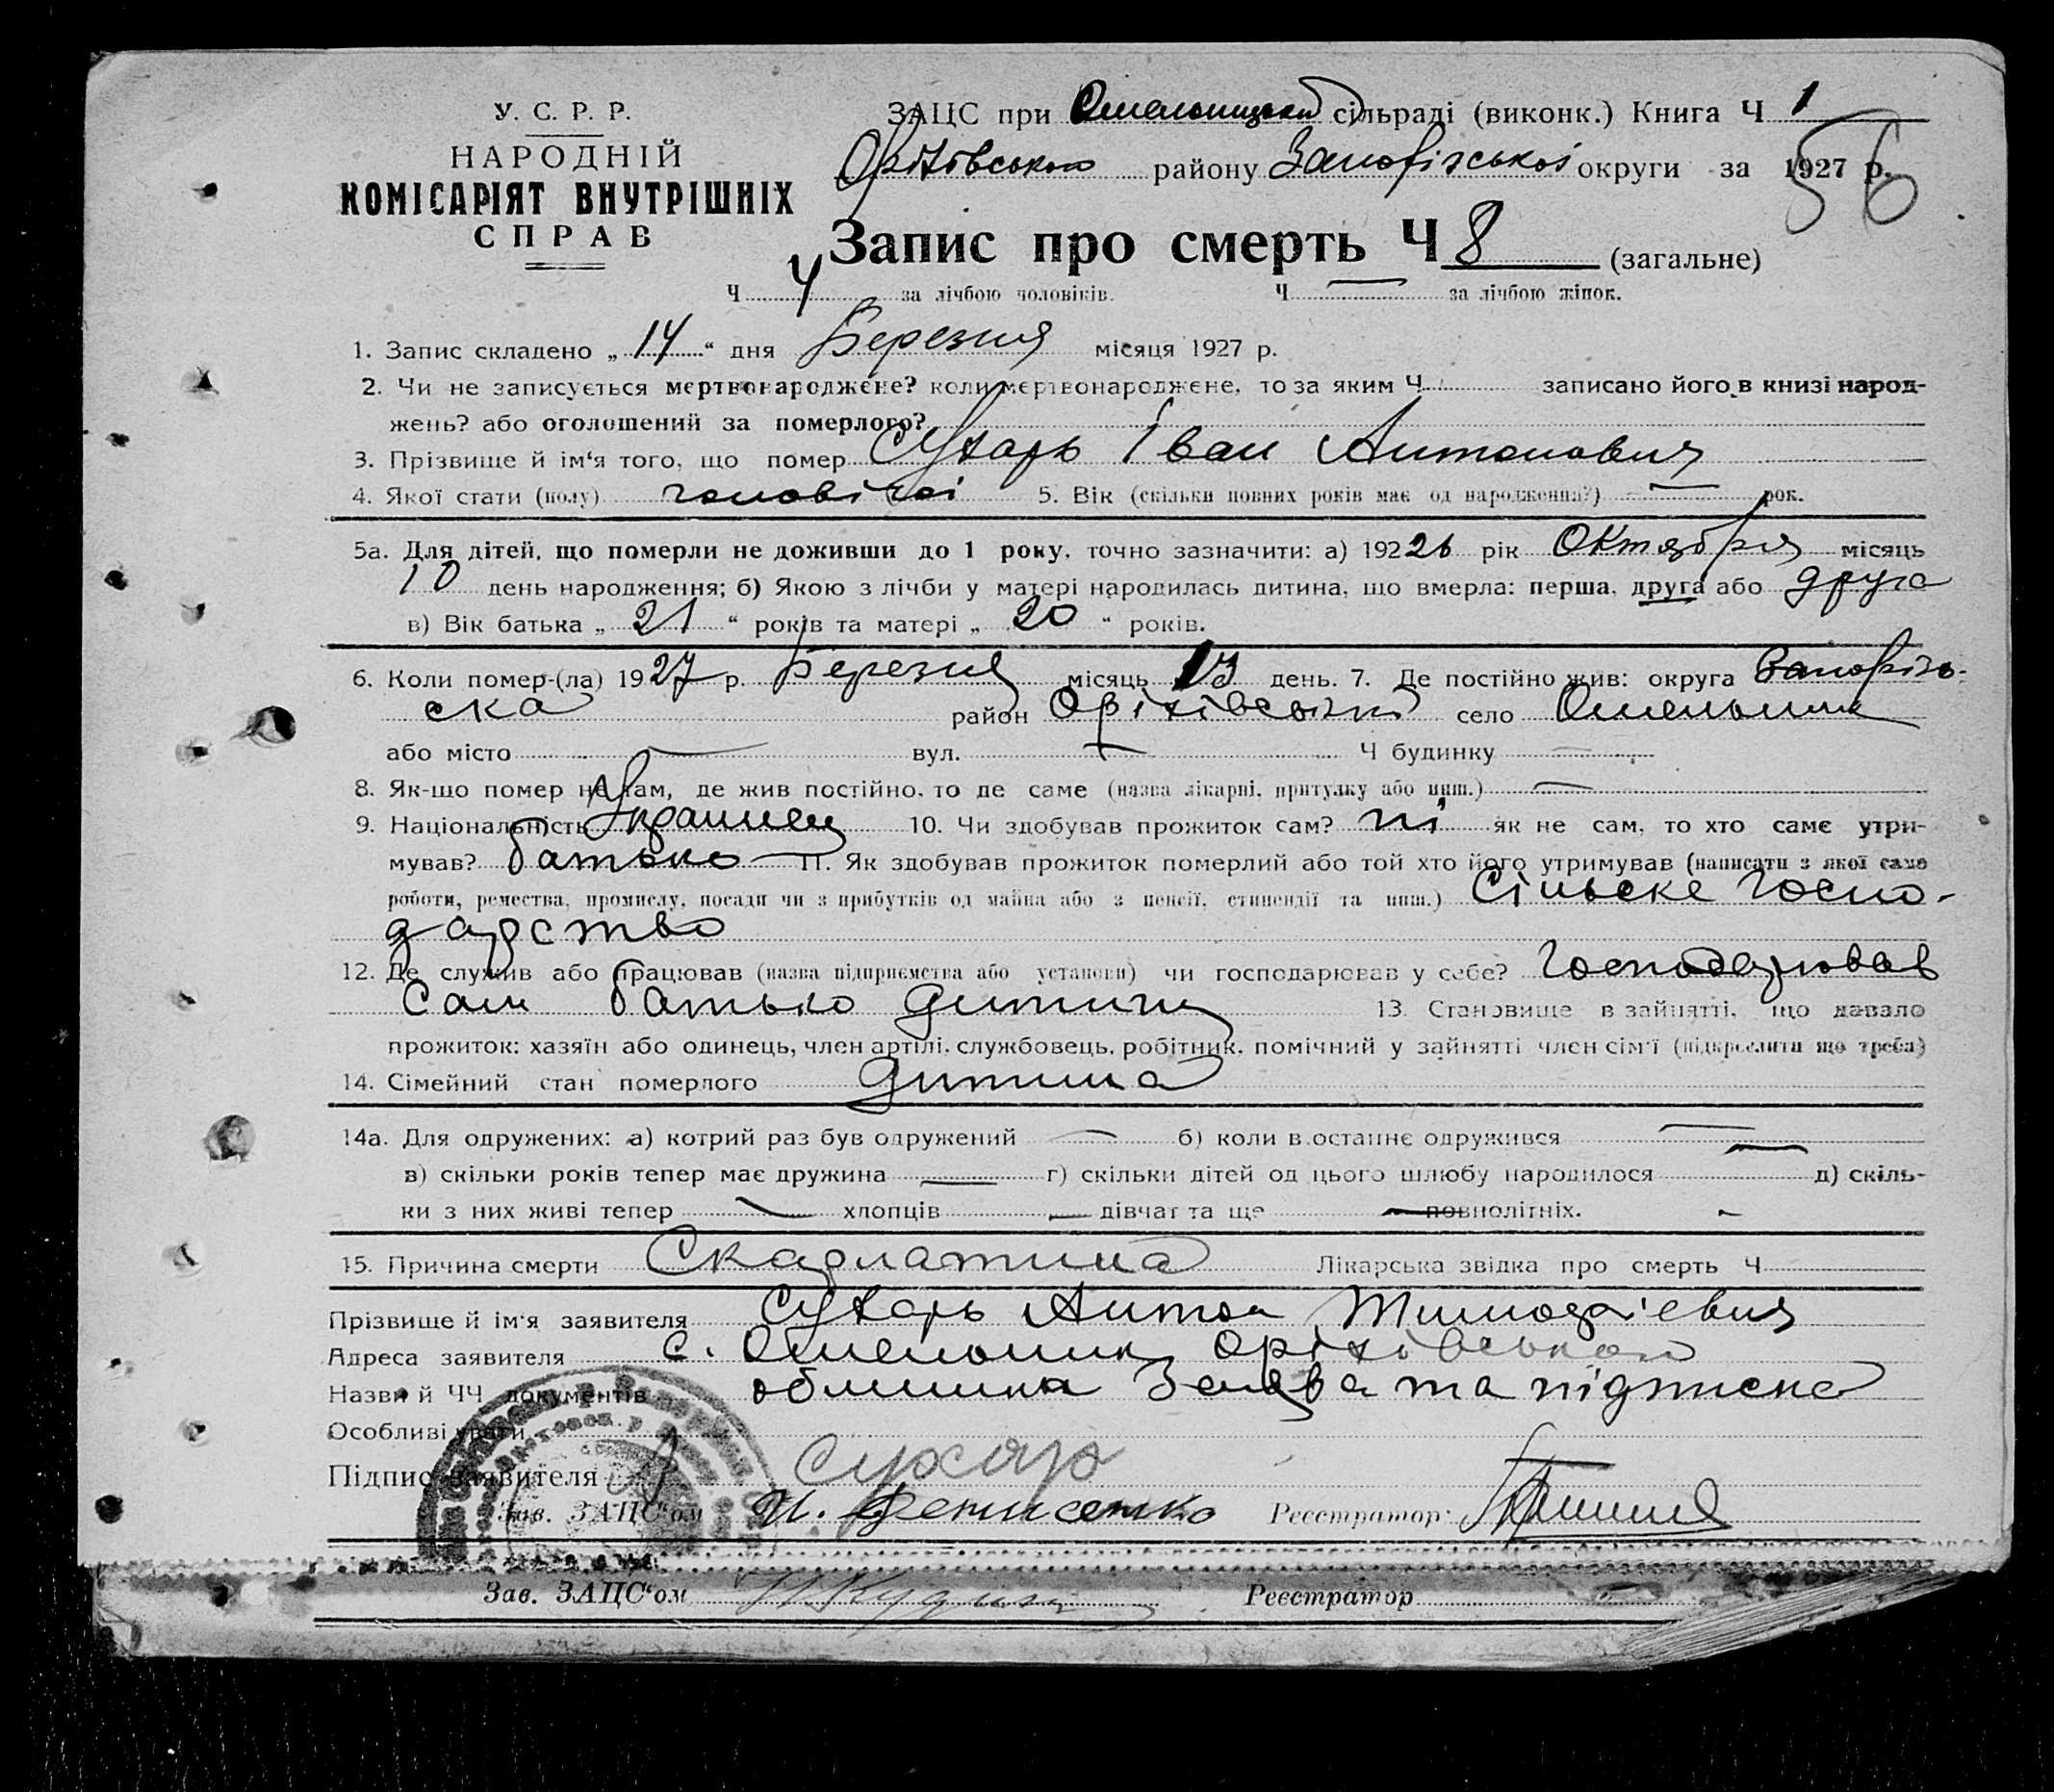 У. С. Р. Р.
НАРОДНІЙ
КОМІСАРІЯТ ВНУТРІШНІХ
СПРАВ
ЗАЦС при сільраді (виконк.) Книга Ч 1
Оріхівського району Запорізської округи за 1927 р.
56
Запис про смерть Ч 8 (загальне)
Ч 4 за лічбою чоловіків. Ч — за лічбою жінок.
1. Запис складено „ 14 “ дня Березня місяця 1927 р.
2. Чи не записується мертвонароджене? коли мертвонароджене, то за яким Ч записано його в книзі народ-
жень? або оголошений за померлого?
3. Прізвище й ім'я того, що помер Сухарь Іван Антонович
4. Якої стати (полу) чоловічої 5. Вік (скільки повних років має од народження?) — рок.
5а. Для дітей, що померли не доживши до 1 року, точно зазначити: а) 192 26 рік Октября місяць
10 день народження; б) Якою з лічби у матері народилась дитина, що вмерла: перша, друга або друга
в) Вік батька „ 21 “ років та матері „ 20 “ років.
6. Коли помер-(ла) 1927 р. Березня місяць 13 день. 7. Де постійно жив: округа Запорізь-
ска район Оріхівський село Омельник
або місто — вул. — Ч будинку —
8. Як-що помер не там, де жив постійно, то де саме (назва лікарні, притулку або инш.) —
9. Національність Українец 10. Чи здобував прожиток сам? ні як не сам, то хто саме утри-
мував? батько 11. Як здобував прожиток померлий або той хто його утримував (написати з якої саме
роботи, ремества, промислу, посади чи з прибутків од майна або з пенсії, стипендії та инш.) Сільске госпо-
дарство
12. Де служив або працював (назва підприємства або установи) чи господарював у себе? Господарював
Сам батько дитини 13. Становище в зайнятті, що давало
прожиток: хазяїн або одинець, член артілі, службовець, робітник, помічний у зайнятті член сім'ї (підкреслити що треба)
14. Сімейний стан померлого дитина
14а. Для одружених: а) котрий раз був одружений — б) коли в останнє одружився —
в) скільки років тепер має дружина — г) скільки дітей од цього шлюбу народилося — д) скіль-
ки з них живі тепер — хлопців — дівчат та ще — повнолітніх. -
15. Причина смерти Скарлатина Лікарська звідка про смерть Ч
Прізвище й ім'я заявителя Сухарь Антон Тимофієвич
Адреса заявителя с. Омельник Оріхівського
Назви й ЧЧ документів Заява та підписка
Особливі уваги
Підпис заявителя Сухарь
Зав. ЗАЦС'ом И. Денисенко Реєстратор:
Зав. ЗАЦС'ом Реєстратор